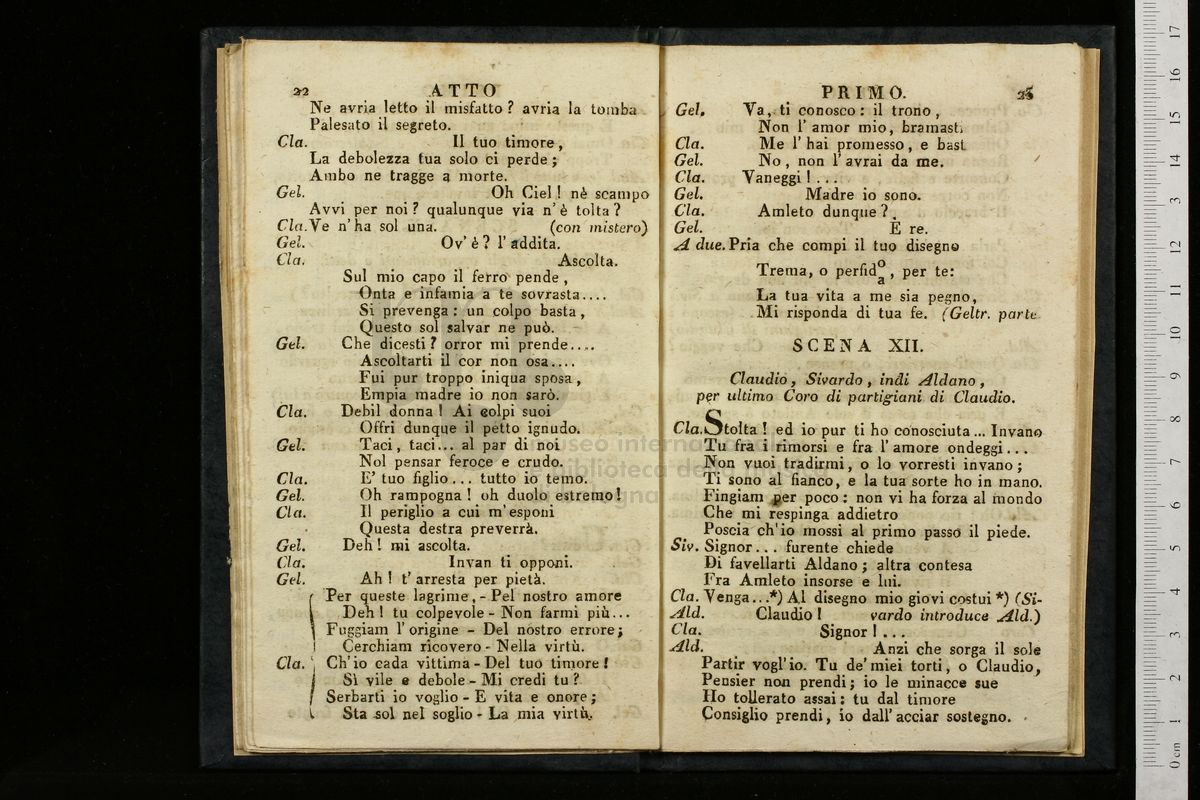 22 ATTO
Ne avria letto il misfatto? avria la tomba
Palesato il segreto.
Cla. Il tuo timore,
La debolezza tua solo ci perde;
Ambo ne tragge a morte.
Gel. Oh Ciel! nè scampo
Avvi per noi? qualunque via n'è tolta?
Cla. Ve n'ha sol una. (con mistero)
Gel. Ov'è? l'addita.
Cla. Ascolta.
Sul mio capo il ferro pende,
Onta e infamia a te sovrasta....
Si prevenga: un colpo basta,
Questo sol salvar ne può.
Gel. Che dicesti? orror mi prende....
Ascoltarti il cor non osa....
Fui pur troppo iniqua sposa,
Empia madre io non sarò.
Cla. Debil donna! Ai colpi suoi
Offri dunque il petto ignudo.
Gel. Taci, taci... al par di noi
Nol pensar feroce e crudo.
Cla. E' tuo figlio... tutto io temo.
Gel. Oh rampogna! oh duolo estremo!
Cla. Il periglio a cui m'esponi
Questa destra preverrà.
Gel. Deh! mi ascolta.
Cla. Invan ti opponi.
Gel. Ah! t'arresta per pietà.
Per queste lagrime, - Pel nostro amore
Deh! tu colpevole - Non farmi più...
Fuggiam l'origine - Del nostro errore;
Cerchiam ricovero - Nella virtù.
Cla. Ch'io cada vittima - Del tuo timore!
Sì vile e debole - Mi credi tu?
Serbarti io voglio - E vita e onore;
Sta sol nel soglio - La mia virtù.
PRIMO.
Gel. Va, ti conosco: il trono,
Non l'amor mio, bramasti
Cla. Me l'hai promesso, e bast
Gel. No, non l'avrai da me.
Cla. Vaneggi!...
Gel. Madre io sono.
Cla. Amleto dunque?
Gel. È re.
A due. Pria che compi il tuo disegno
Trema, o perfid o/a, per te:
La tua vita a me sia pegno,
Mi risponda di tua fe. (Geltr. parte
SCENA XII.
Claudio, Sivardo, indi Aldano,
per ultimo Coro di partigiani di Claudio.
Cla. Stolta! ed io pur ti ho conosciuta... Invano
Tu fra i rimorsi e fra l'amore ondeggi...
Non vuoi tradirmi, o lo vorresti invano;
Ti sono al fianco, e la tua sorte ho in mano.
Fingiam per poco: non vi ha forza al mondo
Che mi respinga addietro
Poscia ch'io mossi al primo passo il piede.
Siv. Signor... furente chiede
Di favellarti Aldano; altra contesa
Fra Amleto insorse e lui.
Cla. Venga...*) Al disegno mio giovi costui *) (Si-
Ald. Claudio! vardo introduce Ald.)
Cla. Signor!...
Ald. Anzi che sorga il sole
Partir vogl'io. Tu de' miei torti, o Claudio,
Pensier non prendi; io le minacce sue
Ho tollerato assai: tu dal timore
Consiglio prendi, io dall'acciar sostegno.
museo internazionale
e biblioteca della musica
di bologna
0 cm 1 2 3 4 5 6 7 8 9 10 11 12 13 14 15 16 17